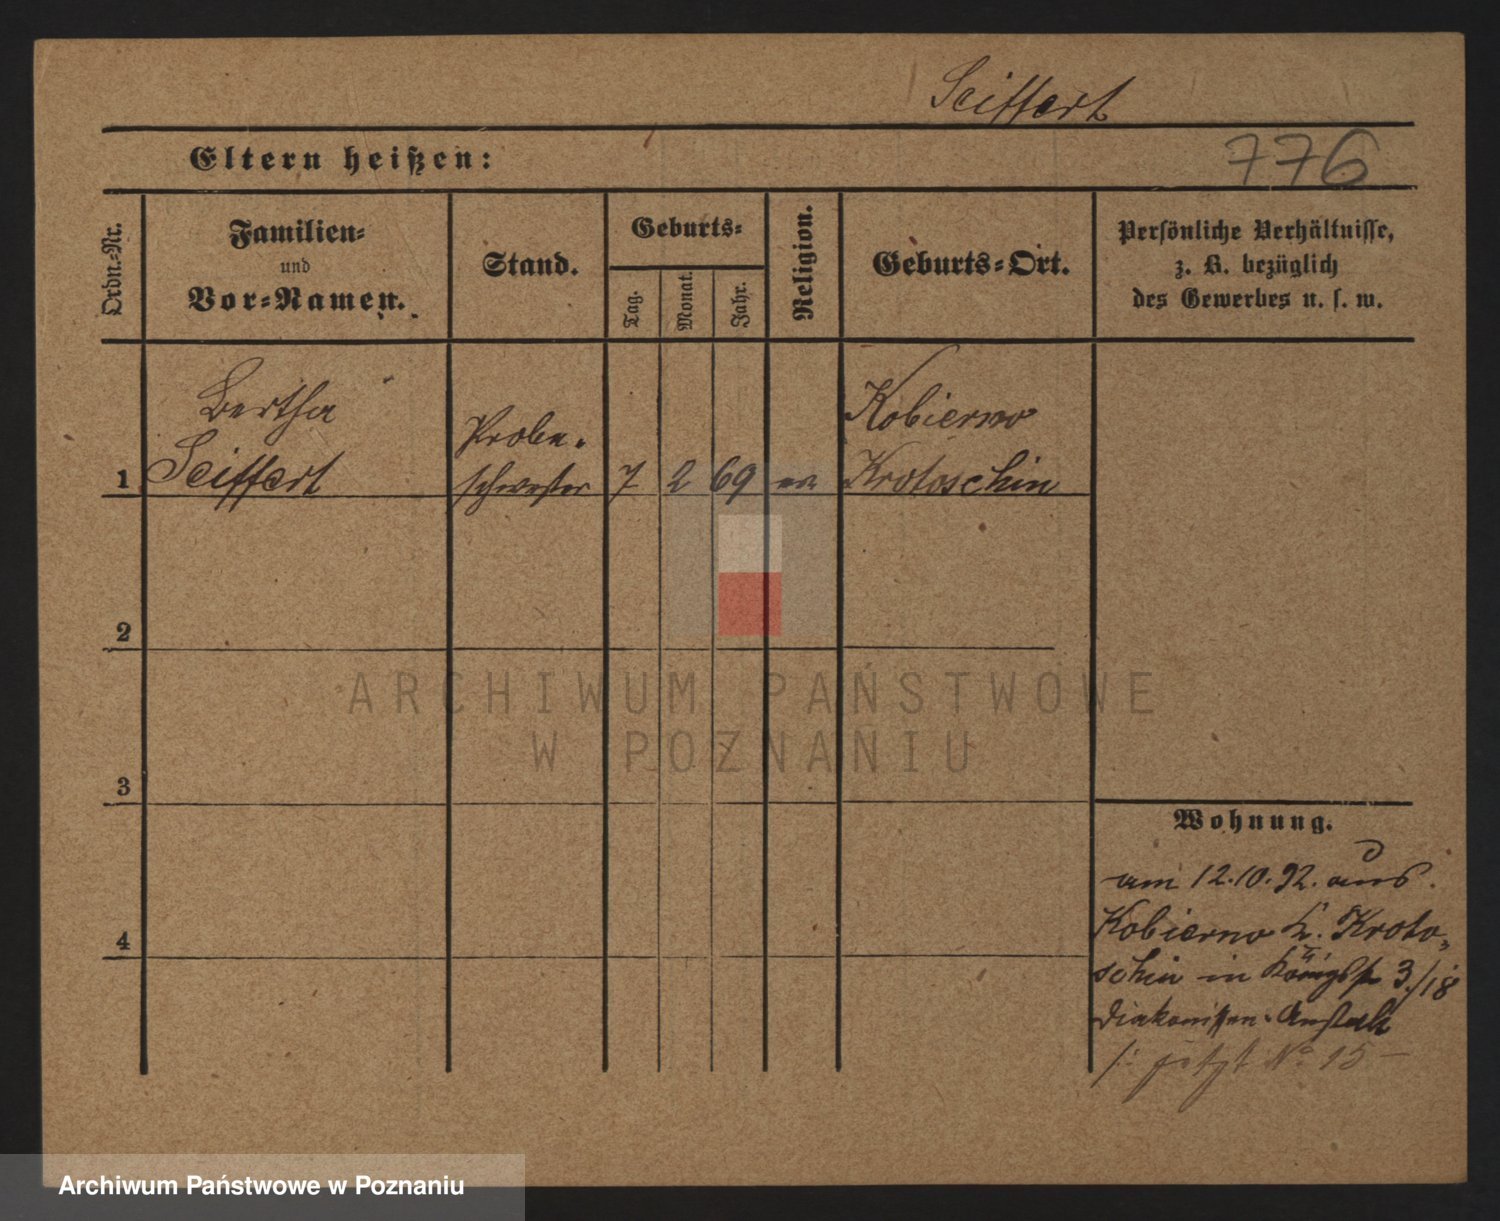 Seiffert
776
Eltern heißen:
Ordn.-Nr.
Familien-
und
Vor-Namen.
Stand.
Geburts-
Tag.
Monat.
Jahr.
Religion.
Geburts-Ort.
Persönliche Verhältnisse,
z. B. bezüglich
des Gewerbes u. s. w.
Bertha
Seiffert
Probe-
schwester
1
7
2
69
Kobierno
Krotoschin
2
3
4
Wohnung.
am 12.10.92. aus
Kobierno K. Kroto-
schin in Königstr 3/18
Diakonissen-Anstalt
jetzt No 15 -
ARCHIWUM PAŃSTWOWE
W POZNANIU
Archiwum Państwowe w Poznaniu